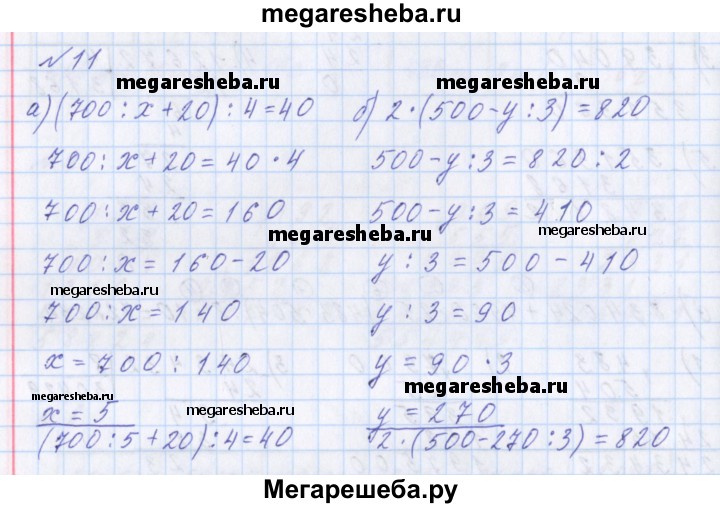 megaresheba.ru
№11
megaresheba.ru megaresheba.ru
а) (700 : x + 20) : 4 = 40
700 : x + 20 = 40 · 4
700 : x + 20 = 160
megaresheba.ru
700 : x = 160 - 20
megaresheba.ru
700 : x = 140
x = 700 : 140
megaresheba.ru
x = 5
megaresheba.ru
(700 : 5 + 20) : 4 = 40
б) 2 · (500 - y : 3) = 820
500 - y : 3 = 820 : 2
500 - y : 3 = 410
megaresheba.ru
y : 3 = 500 - 410
y : 3 = 90
y = 90 · 3
megaresheba.ru
y = 270
2 · (500 - 270 : 3) = 820
Мегарешеба.ру